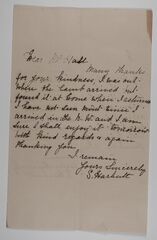 Dear Mr Hall
Many thanks
for your kindness, I was out
when the Lamb arrived but
found it at home when I returned
I have not seen mint since I
arrived in the N. W and I am
sure I shall enjoy it tomorrow
with kind regards & again
thanking you
I remain
Yours Sincerely
S.